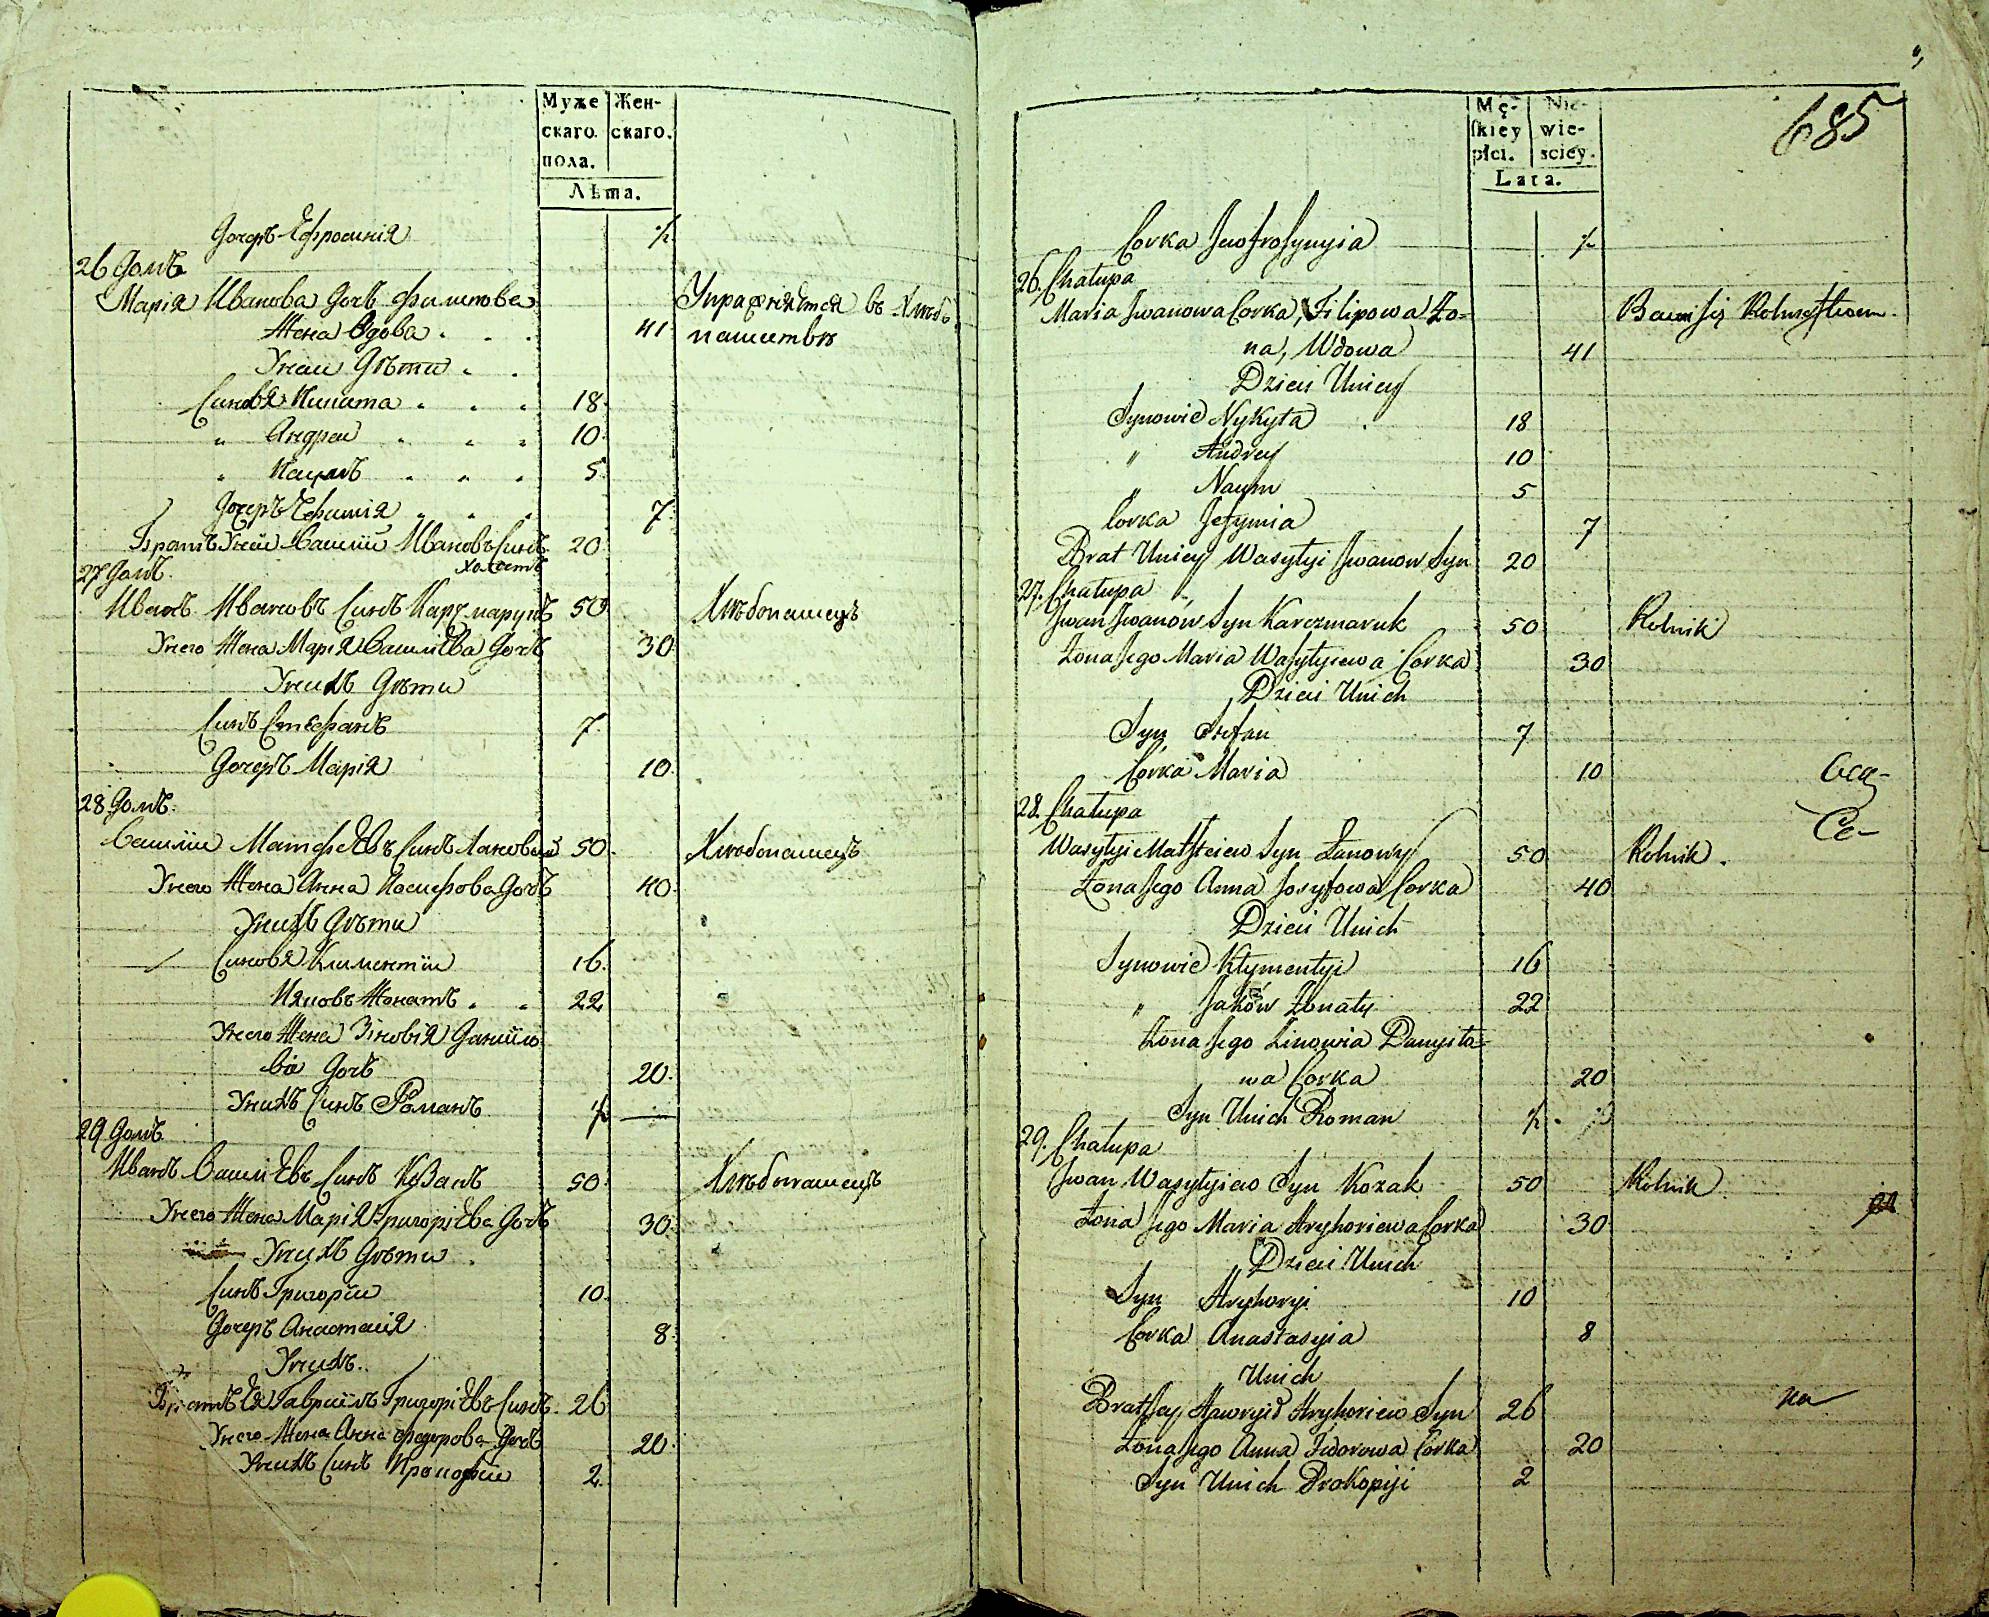 Муже Жен-
скаго. скаго.
пола.
Лѣта.
Дочерь Ефросинія ½
26 Домъ
Марія Иванова Дочь Филипова Упражняется въ Хлѣбо
Жена Вдова 41 пашествѣ
У неи Дѣти
Синовя Никита 18
" Андреи 10
" Наумъ 5
Дочерь Ефимія 7
Братъ У неи Василіи Ивановъ Синъ 20
холостъ
27 Домъ
Иванъ Ивановъ Синъ Карчмарукъ 50 Хлѣбопашецъ
У него Жена Марія Василіева Дочь 30
У нихъ Дѣти
Синъ Стефанъ 7
Дочерь Марія 10
28 Домъ
Василіи Матфѣевъ Синъ Лановый 50 Хлѣбопашецъ
У него Жена Анна Иосифова Дочь 40
У нихъ Дѣти
Синовя Климентіи 16
Яковъ Женатъ 22
У него Жена Зіновія Даниіло
ва Дочь 20
У нихъ Синъ Романъ ½ —
29 Домъ
Иванъ Василіевъ Синъ Козакъ 50 Хлѣбопашецъ
У него Жена Марія Григоріева Дочь 30
У нихъ Дѣти
Синъ Григоріи 10
Дочерь Анастасія 8
У нихъ
Братъ Ея Гавріилъ Григоріевъ Синъ 26
У него Жена Анна Федорова Дочь 20
У нихъ Синъ Прокофіи 2
685
Mę- Nie-
ſkiey wie-
płci. sciey.
Lata.
Corka Jewfrosynyia ½
26. Chałupa
Maria Jwanowa Corka, Filipowa Żo- Bawi się Rolnictwem.
na, Wdowa 41
Dzieci Uniey
Synowie Nykyta 18
" Andrey 10
" Naum 5
Corka Jefymia 7
Brat Uniey Wasylyi Jwanow Syn 20
27. Chałupa
Jwan Jwanów Syn Karczmaruk 50 Rolnik
Żona Jego Maria Wasylyiewa Corka 30
Dzieci Unich
Syn Stefan 7
Corka Maria 10
28. Chałupa
Ce-
Wasylyi Matfteiew Syn Łanowy 50 Rolnik.
Żona Jego Anna Josyfowa Corka 40
Dzieci Unich
Synowie Kłymentyi 16
" Jaków Żonaty 22
Żona Jego Zinowia Danyiło-
wa Corka 20
Syn Unich Roman ½
29. Chałupa
Jwan Wasylyiew Syn Kozak 50 Rolnik
Żona Jego Maria Hryhoriewa Corka 30
Dzieci Unich
Syn Hryhoryi 10
Corka Anastasyia 8
Unich
Brat Jey, Hawryił Hryhoriew Syn 26 на
Żona Jego Anna Fedorowa Corka 20
Syn Unich Prokopiji 2